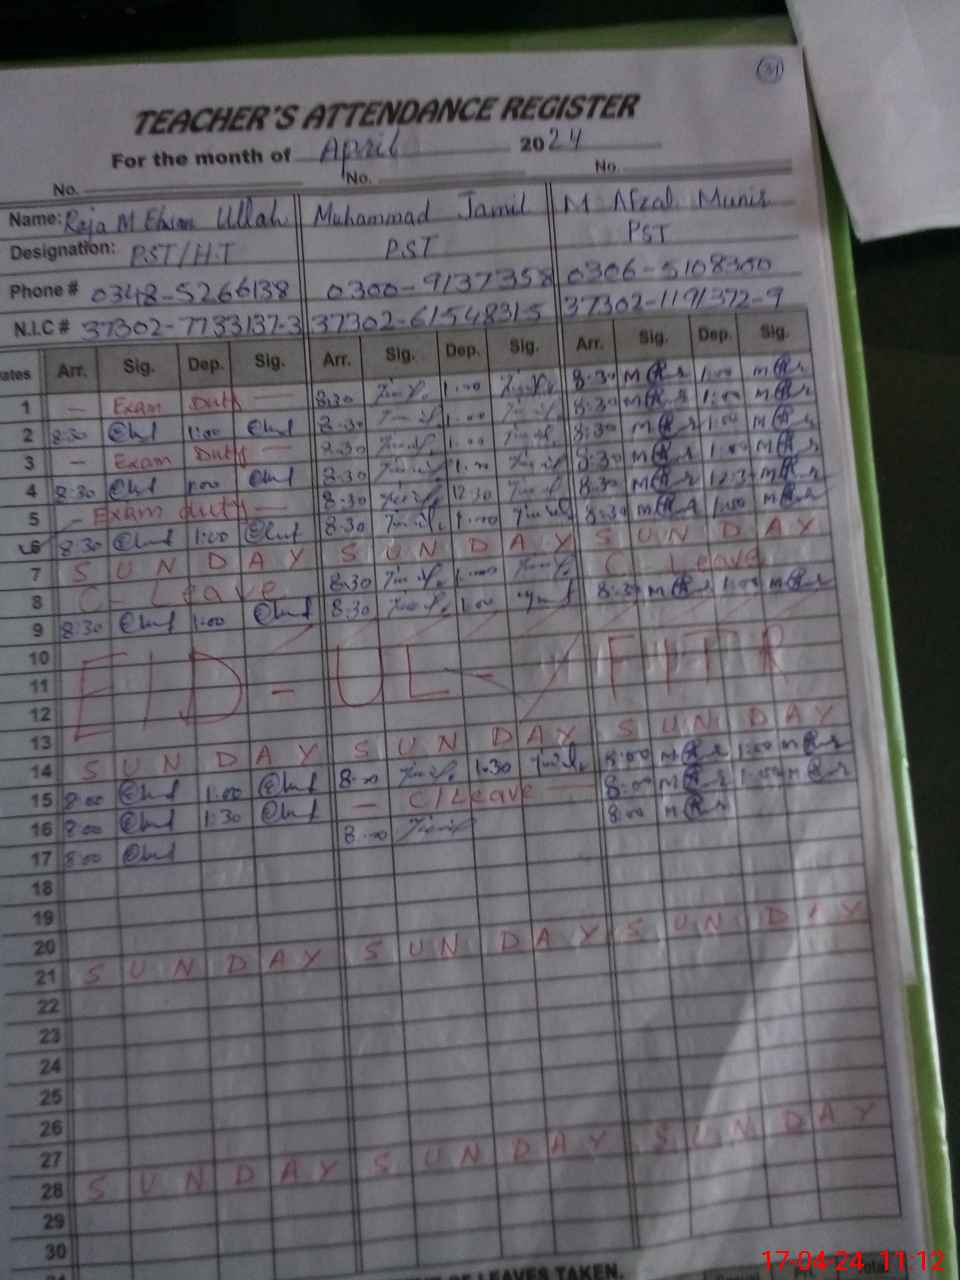 31
TEACHER'S ATTENDANCE REGISTER
For the month of April 2024
No. No. No.
Name: Raja M Ehsan Ullah Muhammad Jamil M Afzal Munir
Designation: PST/H.T PST PST
Phone # 0348-5266138 0300-9137358 0306-5108300
N.I.C # 37302-7733137-3 37302-6154831-5 37302-1191372-9
ates Arr. Sig. Dep. Sig. Arr. Sig. Dep. Sig. Arr. Sig. Dep. Sig.
1 — Exam Duty — 8:30 1:00 8:30 1:00
2 8:30 1:00 8:30 1:00 8:30 1:00
3 — Exam Duty — 8:30 1:00 8:30 1:00
4 8:30 1:00 8:30 1:00 8:30 1:00
5 — Exam duty — 8:30 12:30 8:30 12:30
6 8:30 1:00 8:30 1:00 8:30 1:00
7 S U N D A Y S U N D A Y S U N D A Y
8 C - Leave 8:30 1:00 C - Leave
9 8:30 1:00 8:30 1:00 8:30 1:00
10
11 EID - UL - FITR
12
13
14 S U N D A Y S U N D A Y S U N D A Y
15 8:00 1:00 8:00 1:30 8:00 1:00
16 8:00 1:30 — C/Leave — 8:00
17 8:00 8:00 8:00
18
19
20
21 S U N D A Y S U N D A Y S U N D A Y
22
23
24
25
26
27
28 S U N D A Y S U N D A Y S U N D A Y
29
30
OF LEAVES TAKEN.
17-04-24 11:12